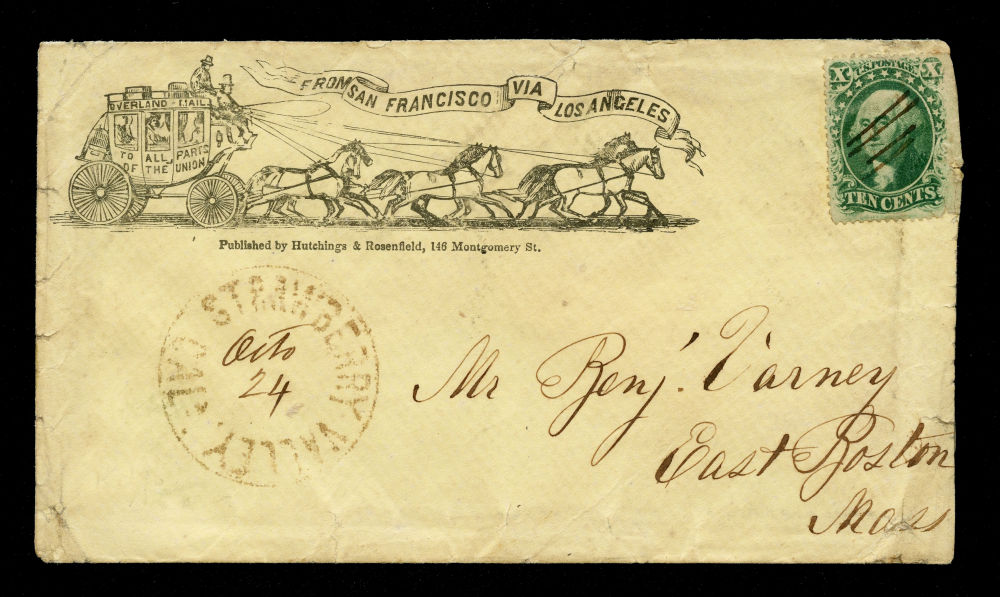 FROM SAN FRANCISCO VIA LOS ANGELES
OVERLAND - MAIL
TO ALL PARTS
OF THE UNION
Published by Hutchings & Rosenfield, 146 Montgomery St.
X U.S. POSTAGE X
TEN CENTS
STRAWBERRY VALLEY, CALF.
Octo
24
Mr Benj. Varney
East Boston
Mass